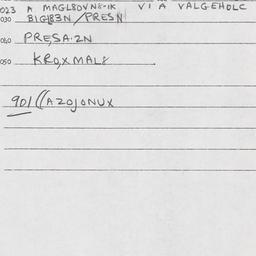 023 A MAGL80VN8-1K VIA VALGEHOLC
030 BIG183N/PRESN
040 PRESA.2N
050 KROXMAL8
901 ((AZOJONUX